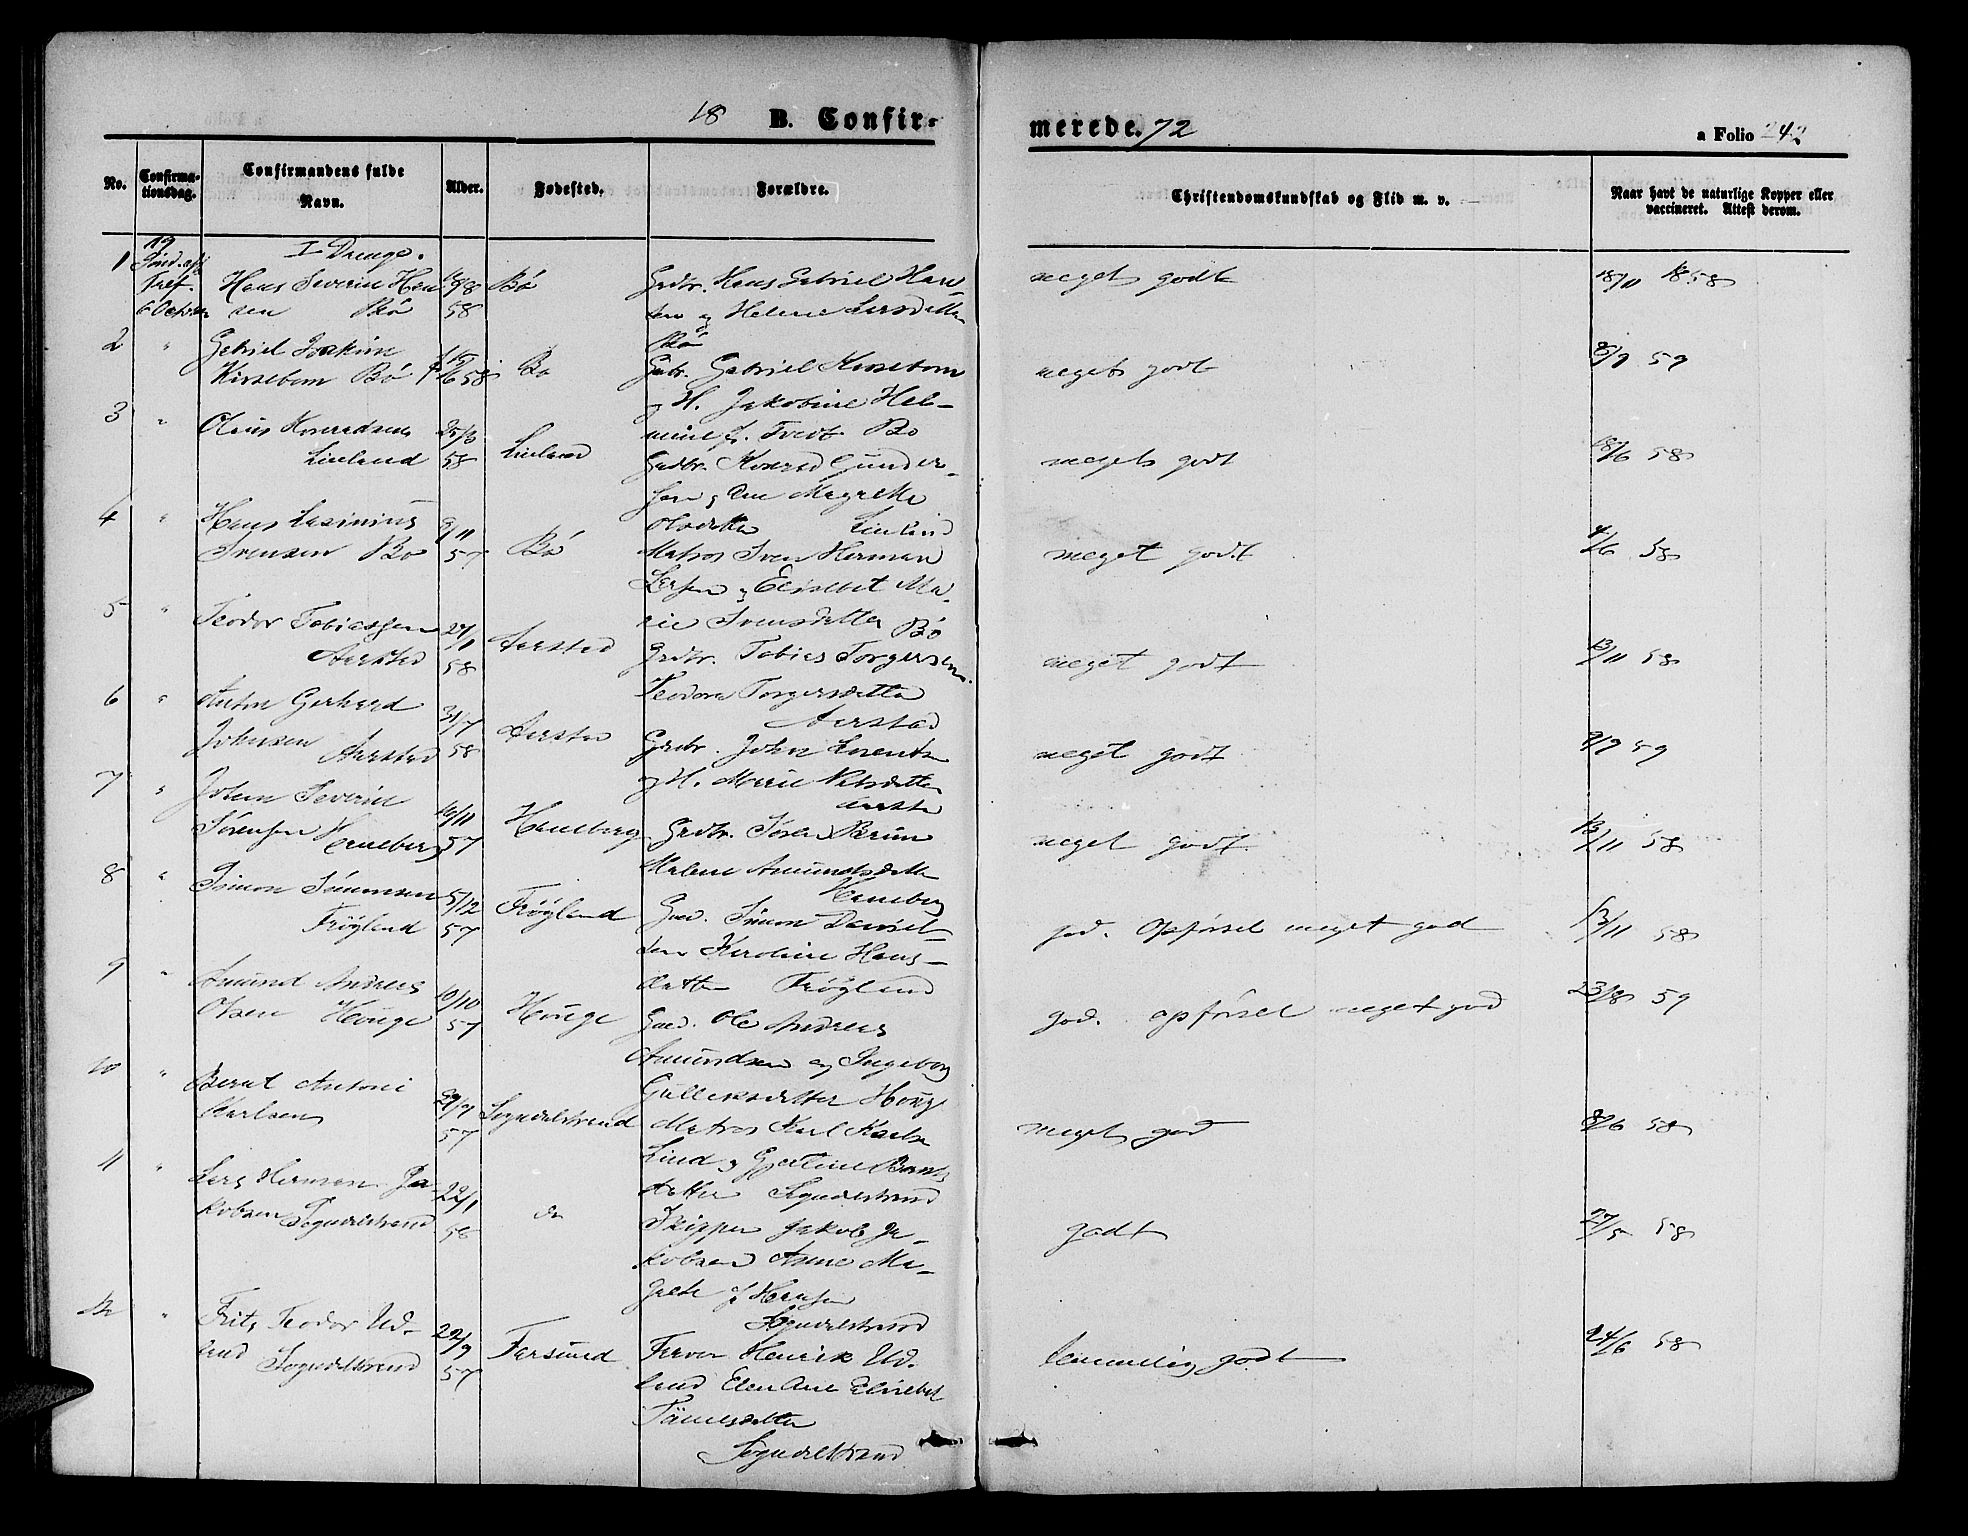 18 B. Confir-
merede. 72
a Folio 242
No.
Confirma-
tionsdag.
Confirmandens fulde
Navn.
Alder.
Fødested.
Forældre.
Christendomskundskab og Flid m. v.
Naar havt de naturlige Kopper eller
vaccineret. Attest derom.
I Drenge.
1
19
Tref.
6 October
Hans Severin Han
sen Bö
58
Bö
Grdbr. Hans Gabriel Han-
sen og Helene Larsdatter
Bö
meget godt
18/11 1858
2
"
Gabriel Joakim
Kirsebom Bö
58
Bö
Gabriel Kirsebom
og H. Jakobine Hel-
mine f. Tvedt Bö
meget godt
59
3
"
Konradsen
Liland
25/3
58
Liland
Grdbr. Konrad Gunder-
sen og Ane Magrethe
Olsdatter
meget godt
18/6 58
4
"
Hans Lasinius
Svensen Bö
9/11
57
Bö
Matros Sven Herman
Larsen og Elisabet Ma-
rie Svensdatter Bö
meget godt
4/6 58
5
"
Teodor Tobiassen
Aarstad
58
Aarstad
Grdbr. Tobias Torgersen
Teodora Torgersdatter
Aarstad
meget godt
13/11 58
6
"
Anton Gerhard
Johnsen Aarstad
31/7
58
Aarstad
Grdbr. John Lorents
og H. Marie Nilsdatter
Aarstad
meget godt
59
7
"
Johan Severin
Sörensen Haneberg
10/11
57
Haneberg
Grdbr. Sören Bruun
Malene Amundsdatter
Haneberg
meget godt
13/11 58
8
"
Simon Simonsen
Fröyland
5/12
57
Fröyland
Gad. Simon Daniel-
sen Karoline Hans-
datter Fröyland
god. opförsel meget god
13/11 58
9
"
Amund Andreas
Olsen Houge
10/10
57
Houge
Gad. Ole Andreas
Amundsen og Ingeborg
Gulleksdatter Houge
god. opförsel meget god
23/8 59
10
"
Bernt Antoni
Karlsen
57
Sogndalstrand
Matros Karl Karlsen
Lind og
datter Sogndalstrand
meget god
58
11
"
Lars Herman Ja-
kobsen Sogndalstrand
22/1
58
do
Skipper Jakob Ja-
kobsen Anne Ma-
grete f. Hansen
Sogndalstrand
godt
27/5 58
12
"
Frits Teodor Ud-
land Sogndalstrand
22/9
57
Farsund
Farver Henrik Ud-
land Elen Ane Elisabet
Sogndalstrand
temmelig godt
24/6 58